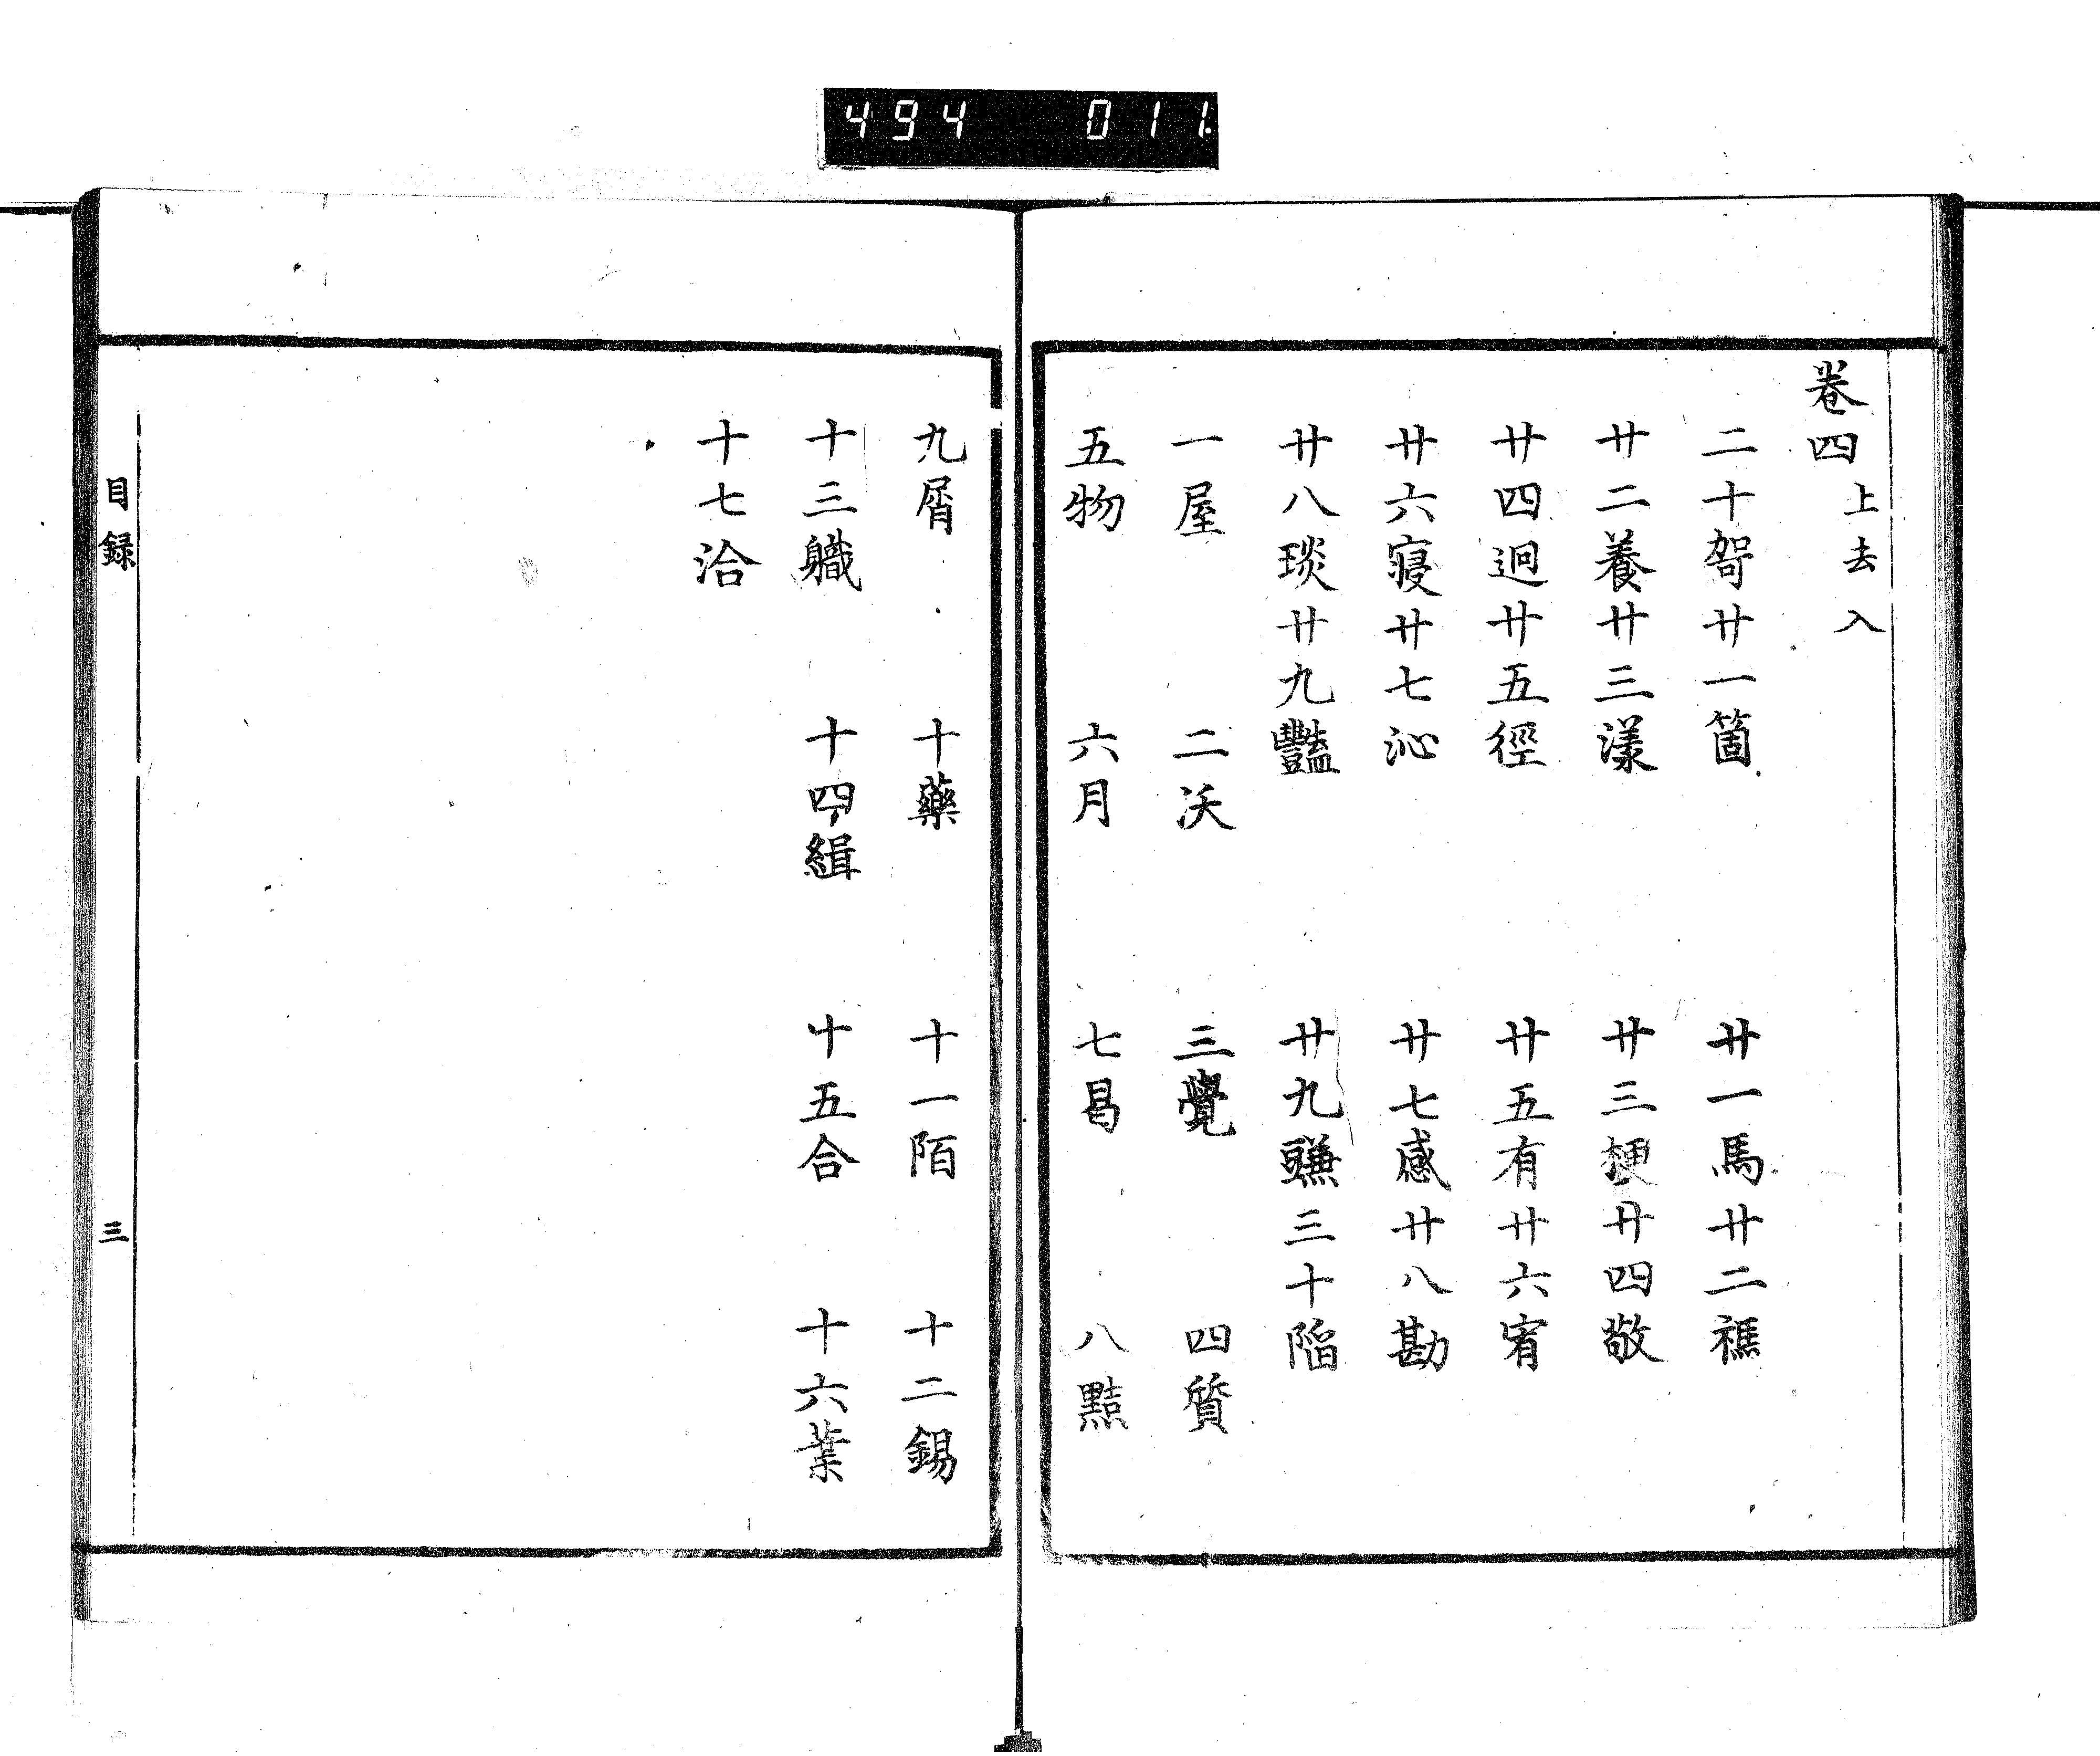 494 011
卷四 上去入
二十哿廿一箇 廿一馬廿二禡
廿二養廿三漾 廿三梗廿四敬
廿四迥廿五徑 廿五有廿六宥
廿六寝廿七沁 廿七感廿八勘
廿八琰廿九豔 廿九豏三十陷
一屋 二沃 三覺 四質
五物 六月 七曷 八黠
九屑 十藥 十一陌 十二錫
十三軄 十四緝 十五合 十六葉
十七洽
目録 三